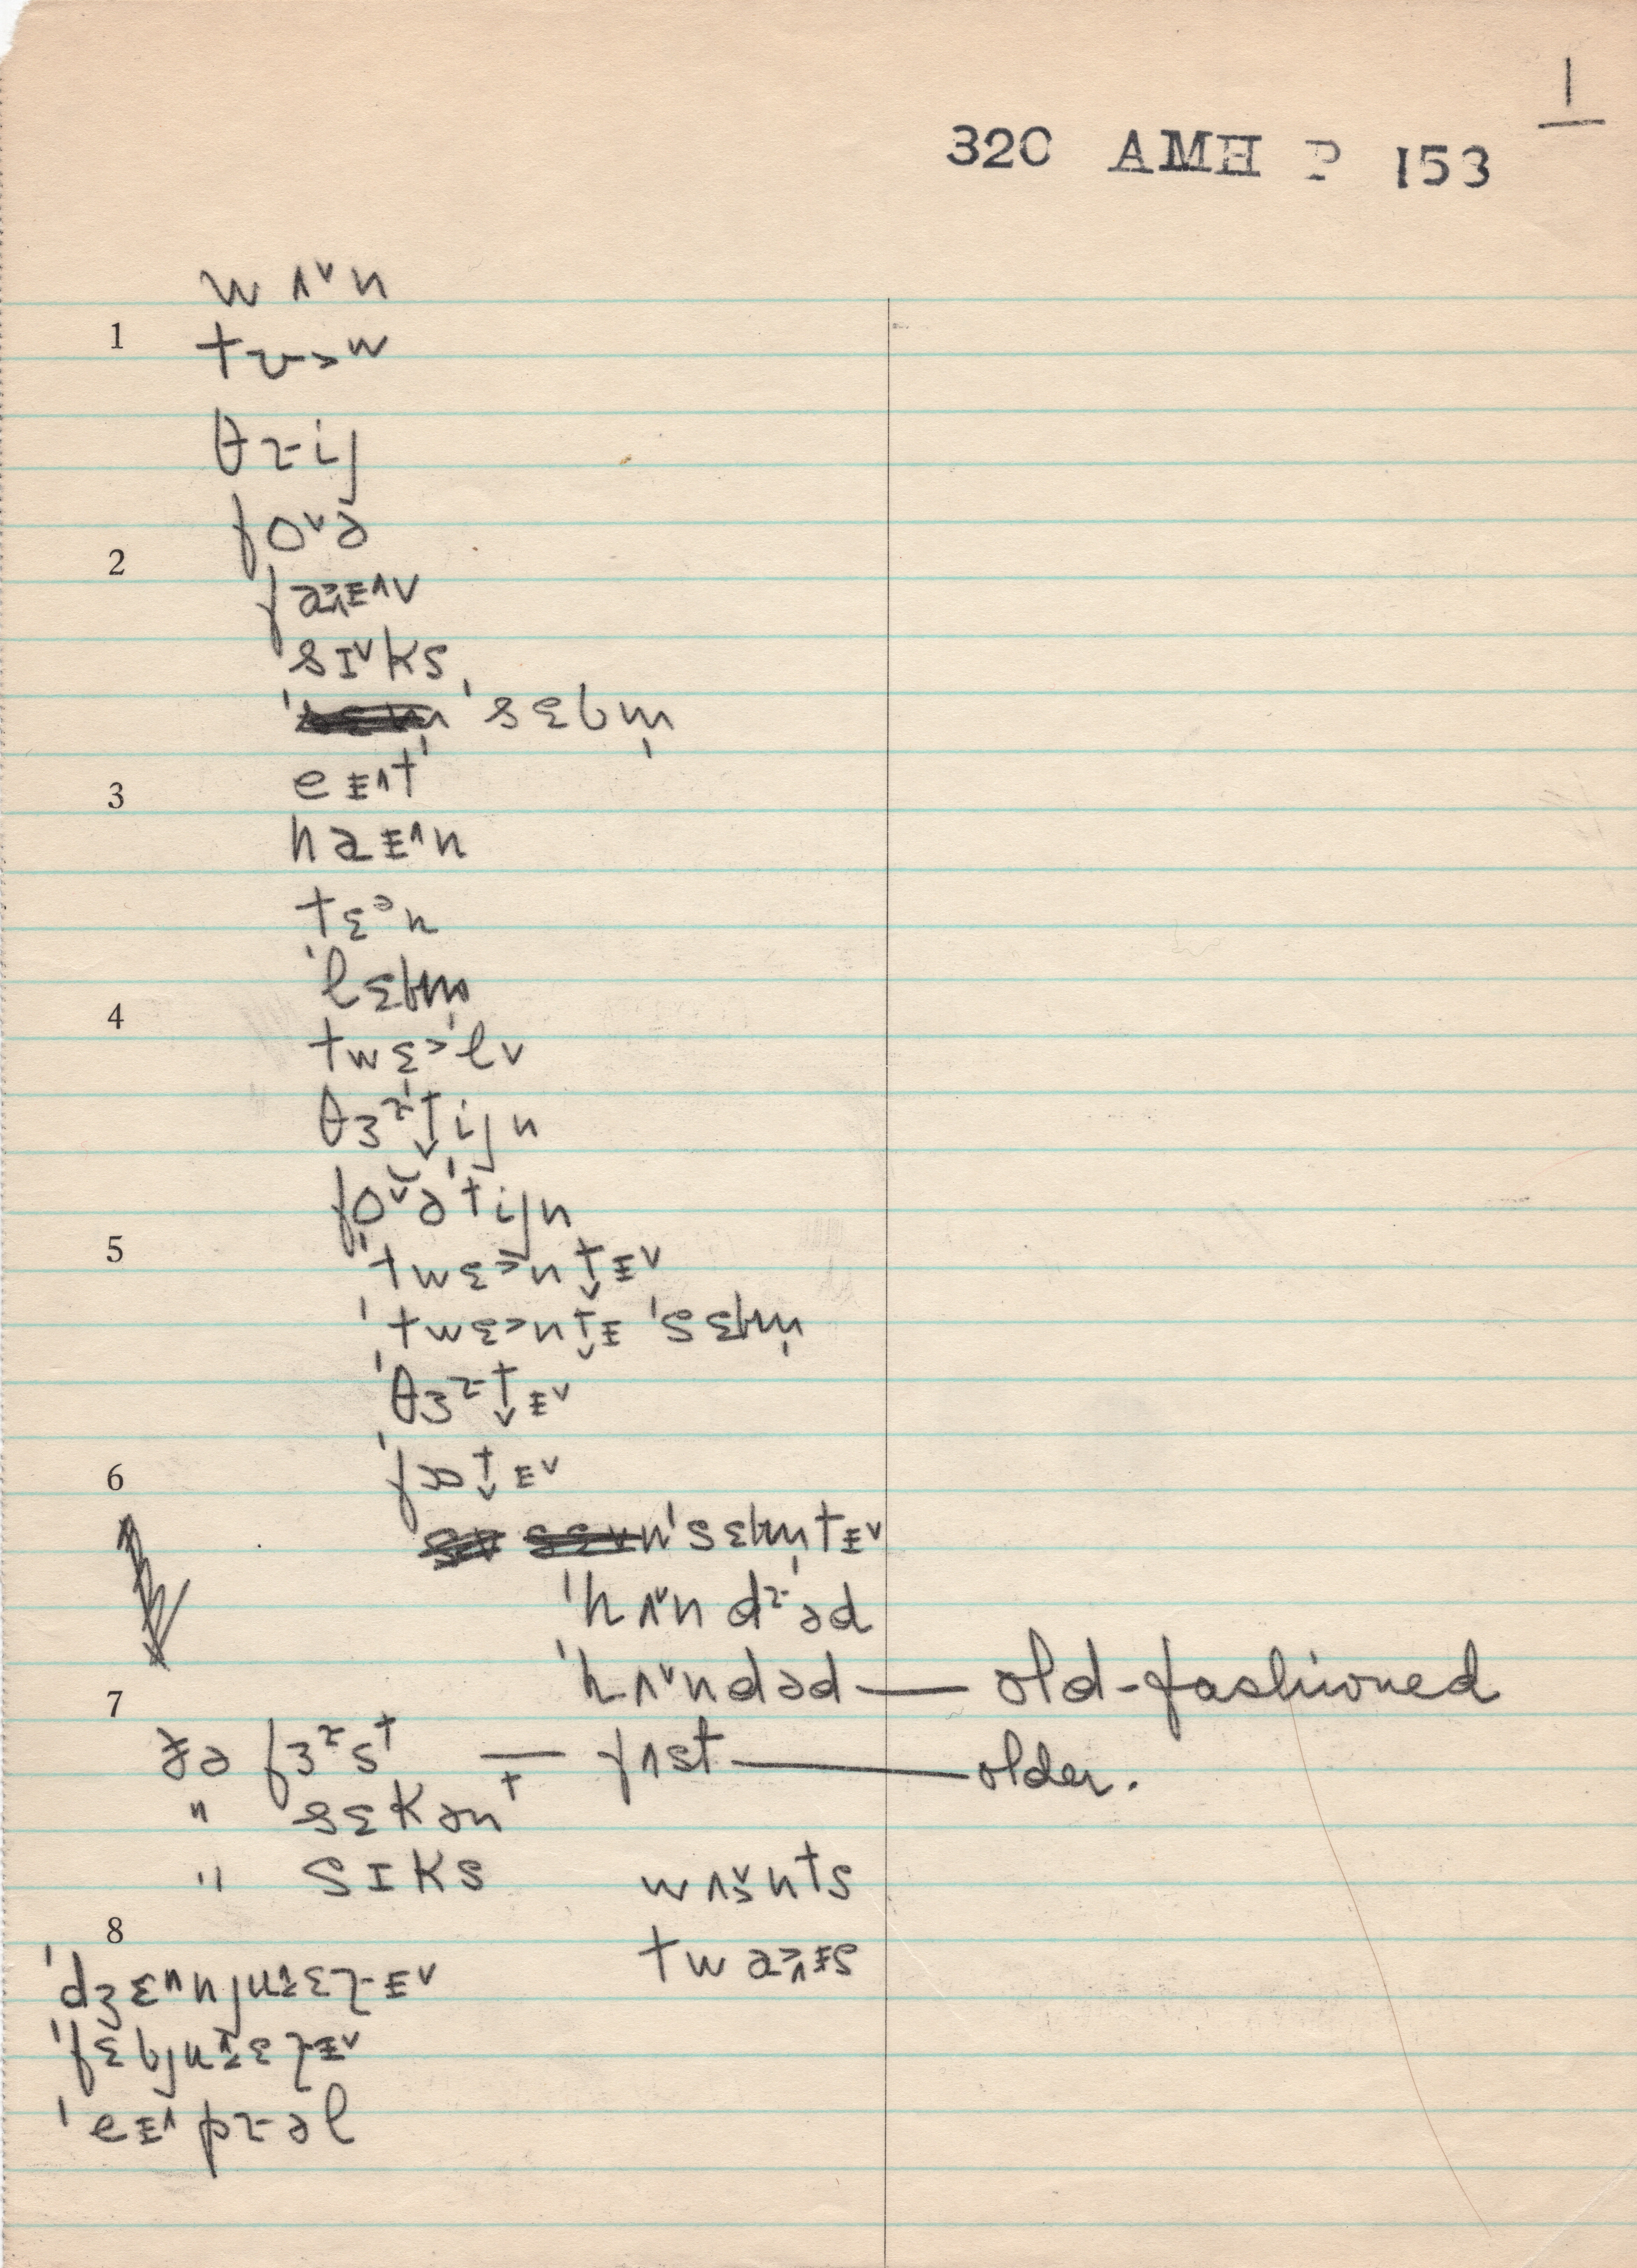 1
320 AMH P 153
wʌ˅n
1 tʉ˃w
θɹij
fo˅ə
2 fa˃ᵻ˄v
sɪ˅ks
'sɛbm̩
eᵻ˄t
3
haᵻ˄n
tɛᵊn
'lɛbm̩
4
twɛ˃lv
θɜɹ'tijn
foə'tijn
5 'twɛ˃nt̬ᵻ˅
'twɛ˃nt̬ᵻ 'sɛbm̩
'θɜɹt̬ᵻ˅
6 'fɔət̬ᵻ˅
'sɛbm̩tᵻ˅
'hʌ˅ndɹəd
'hʌ˅ndəd — old-fashioned
7
ðə fɜɹst — fʌst — older.
" sɛkənt
" sɪks wʌ˅nts
8 twa˃ᵻs
'dʒɛ˄njuɛɹᵻ˅
'fɛbjuɛɹᵻ˅
'eᵻ˄pɹəl